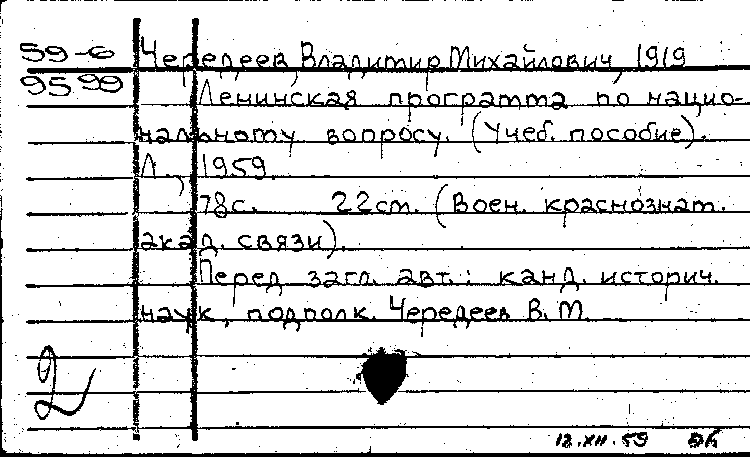 59-6 Чередеев, Владимир Михайлович, 1919
9599 Ленинская программа по нацио-
нальному вопросу. (Учеб. пособие).
Л., 1959.
78с. 22см. (Воен. краснознам.
акад. связи).
Перед загл. авт.: канд. историч.
наук, подполк. Чередеев В.М.
2
12.XII.59